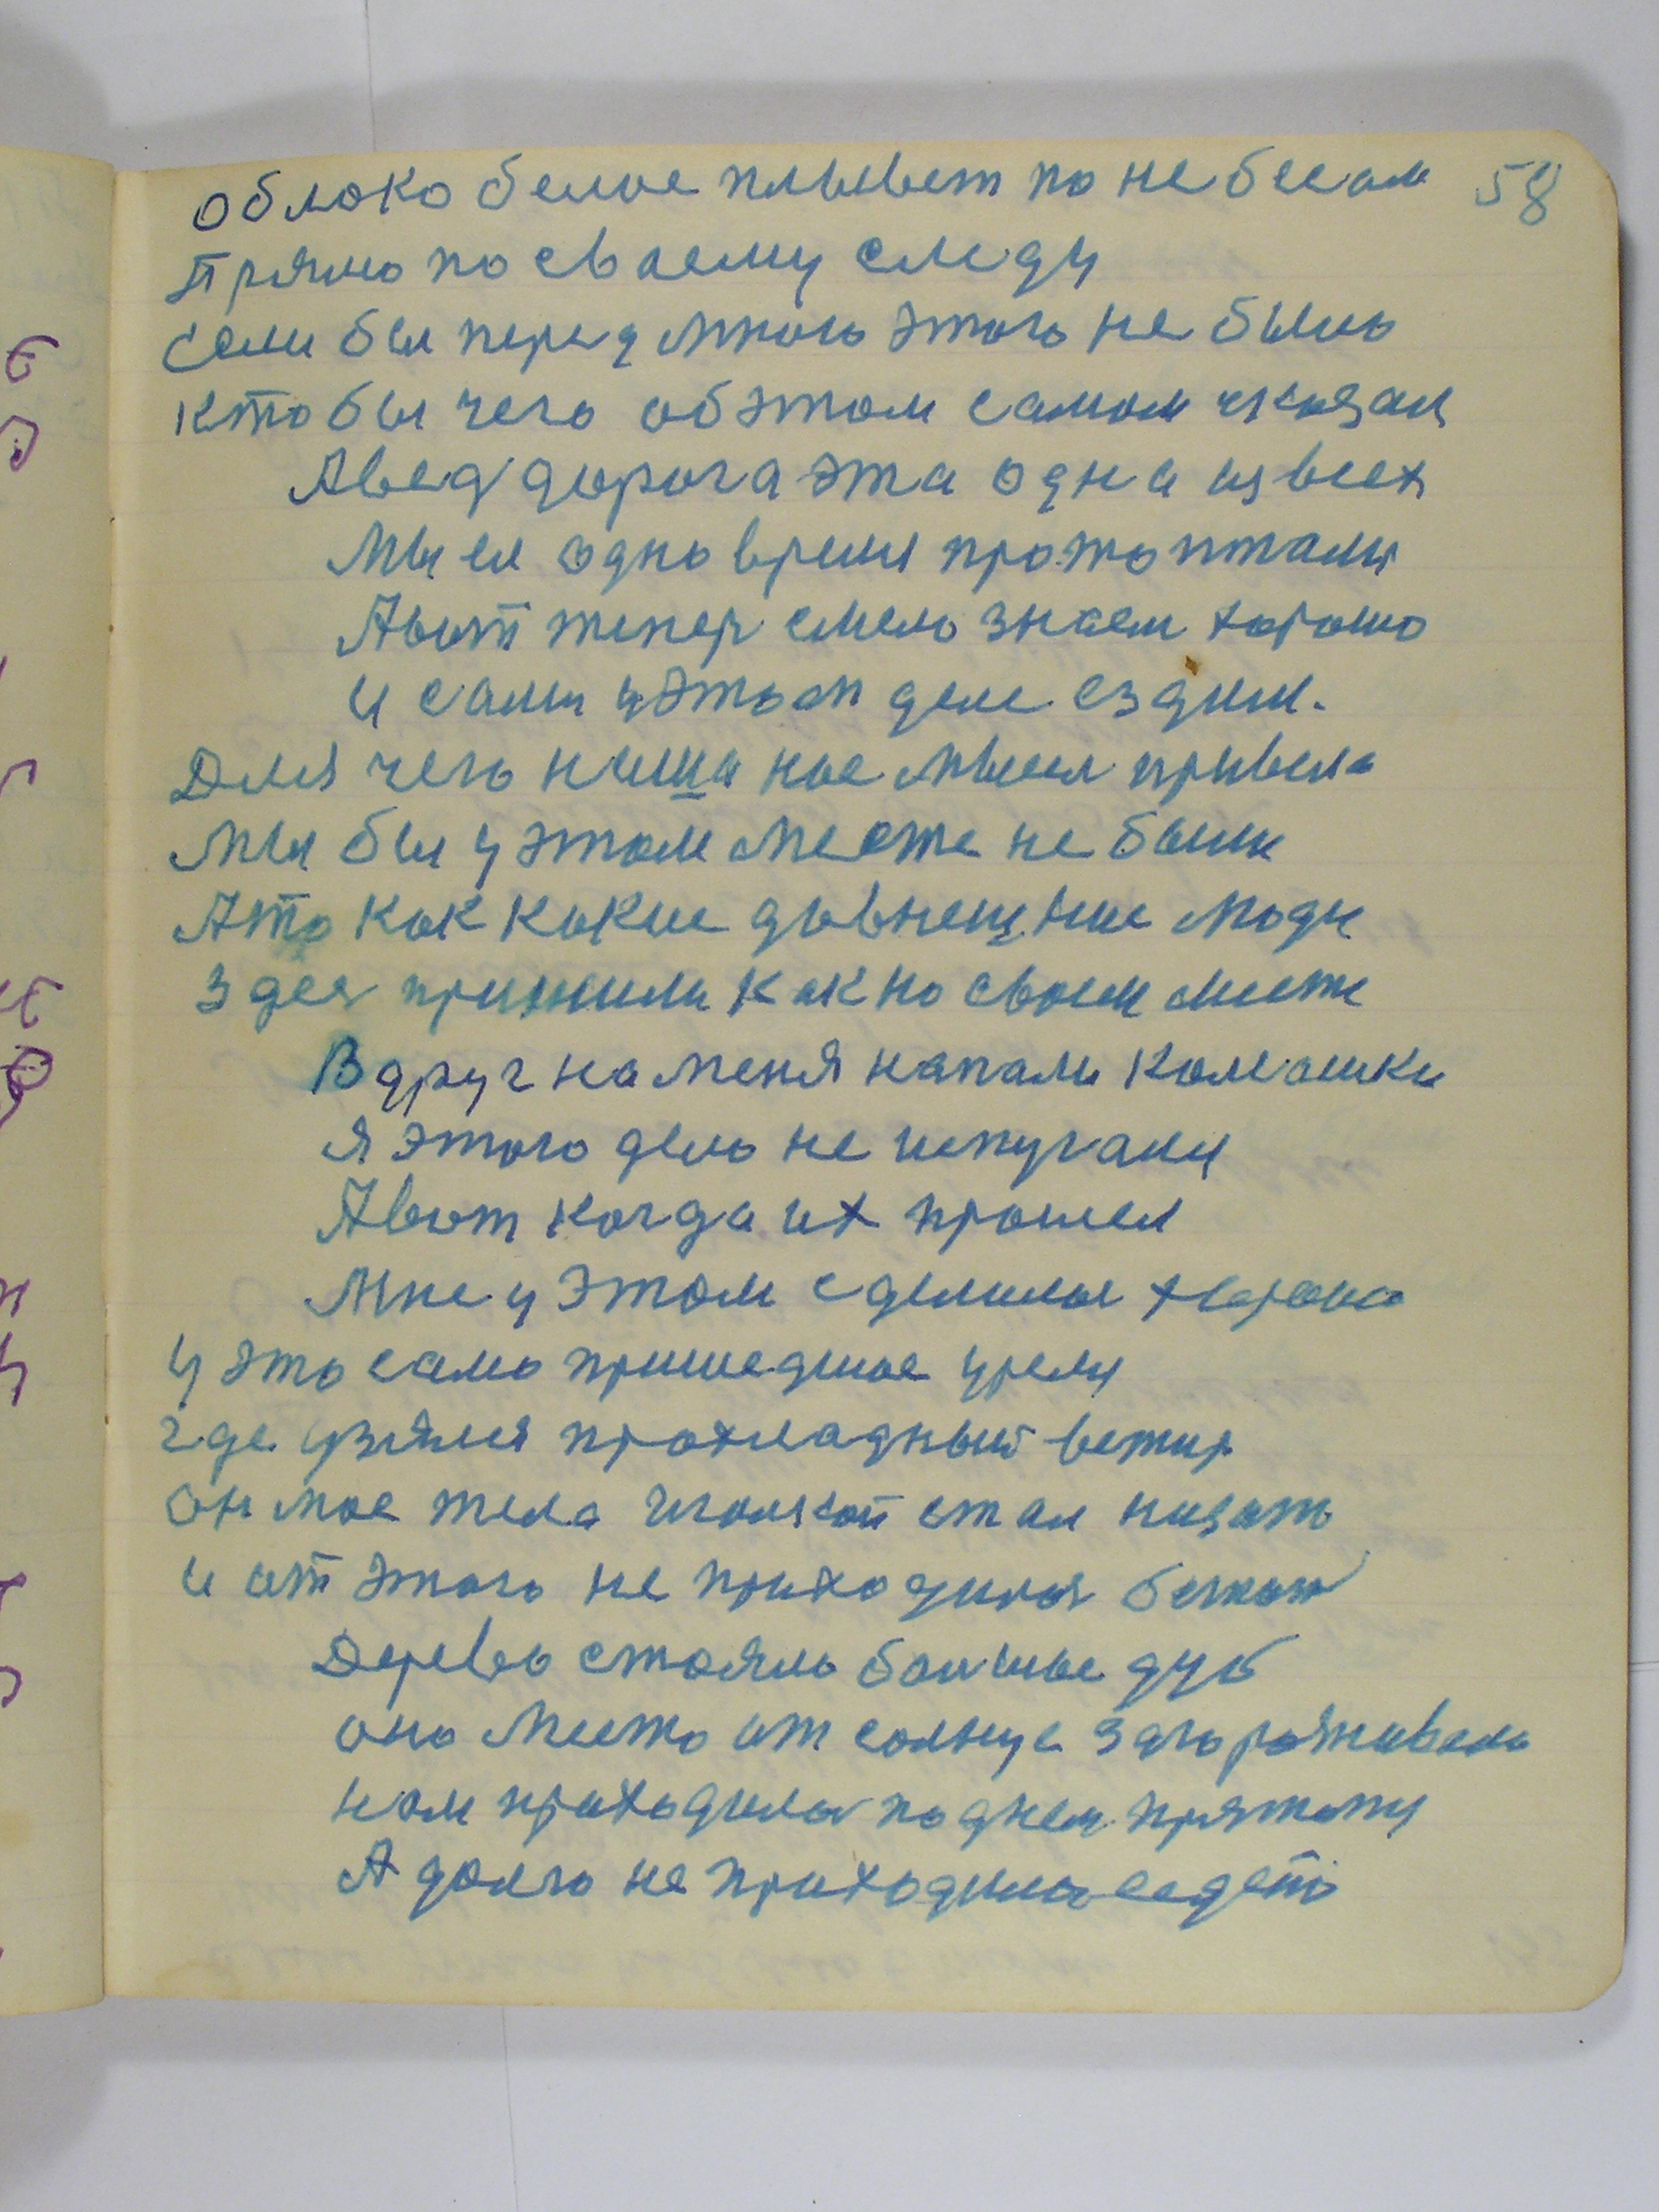 облоко белое плывет по небесам 58
Прямо по своему следу
Если бы передмною этого не было
кто бы чего обэтом самом указал
Авед дорога эта одна извсех
Мы ея одно время протоптали
Авот тепер смело знаем хорошо
и сами уэтом деле ездим.
Для чего наша нас мысля привела
Мы бы у этом месте не были
Ато как какие довнешние люди
Здеся прижили как но своем месте
Вдруг наменя напали комашки
Я этого дело не испугался
Авот когда их прошел
Мне у этом сделалос хорошо
у это само пришедшое уремя
где узялся прохладный ветир
он мое тела иголкой стал низать
и от этого не приходился бежат
Дерево стояло большое дуб
оно место от солнца загораживала
нам приходилос поднем прятатся
А долго не приходилос седеть